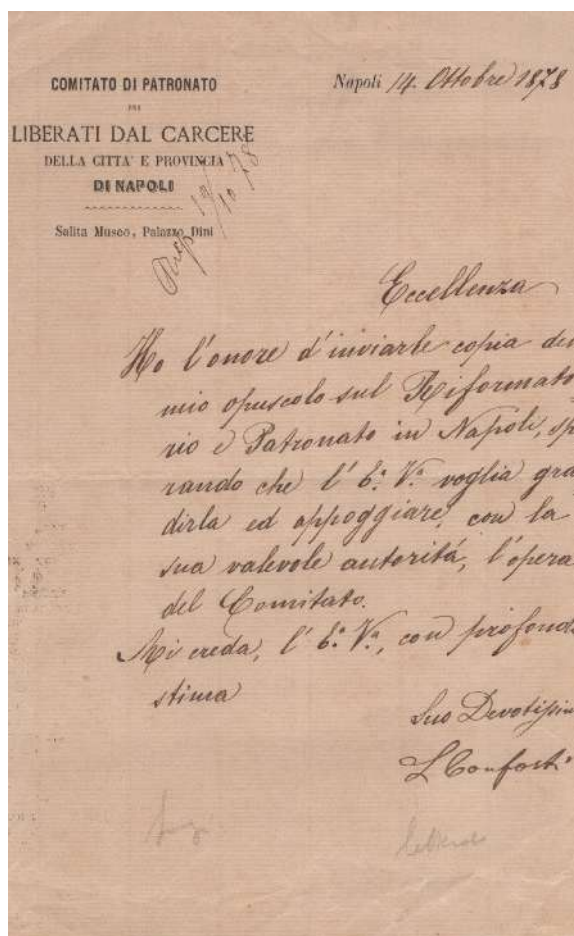 COMITATO DI PATRONATO
PEI
LIBERATI DAL CARCERE
DELLA CITTA' E PROVINCIA
DI NAPOLI
Salita Museo, Palazzo Dini
Napoli 14. Ottobre 1878
Risp
Eccellenza
Ho l'onore d'inviarle copia del
mio opuscolo sul Riformato
rio e Patronato in Napoli, spe
rando che l'E.ª V.ª voglia gra
dirla ed appoggiare, con la
sua valevole autorità, l'opera
del Comitato.
Mi creda, l'E.ª V.ª, con profonda
stima
Suo Devotissim
L Conforti